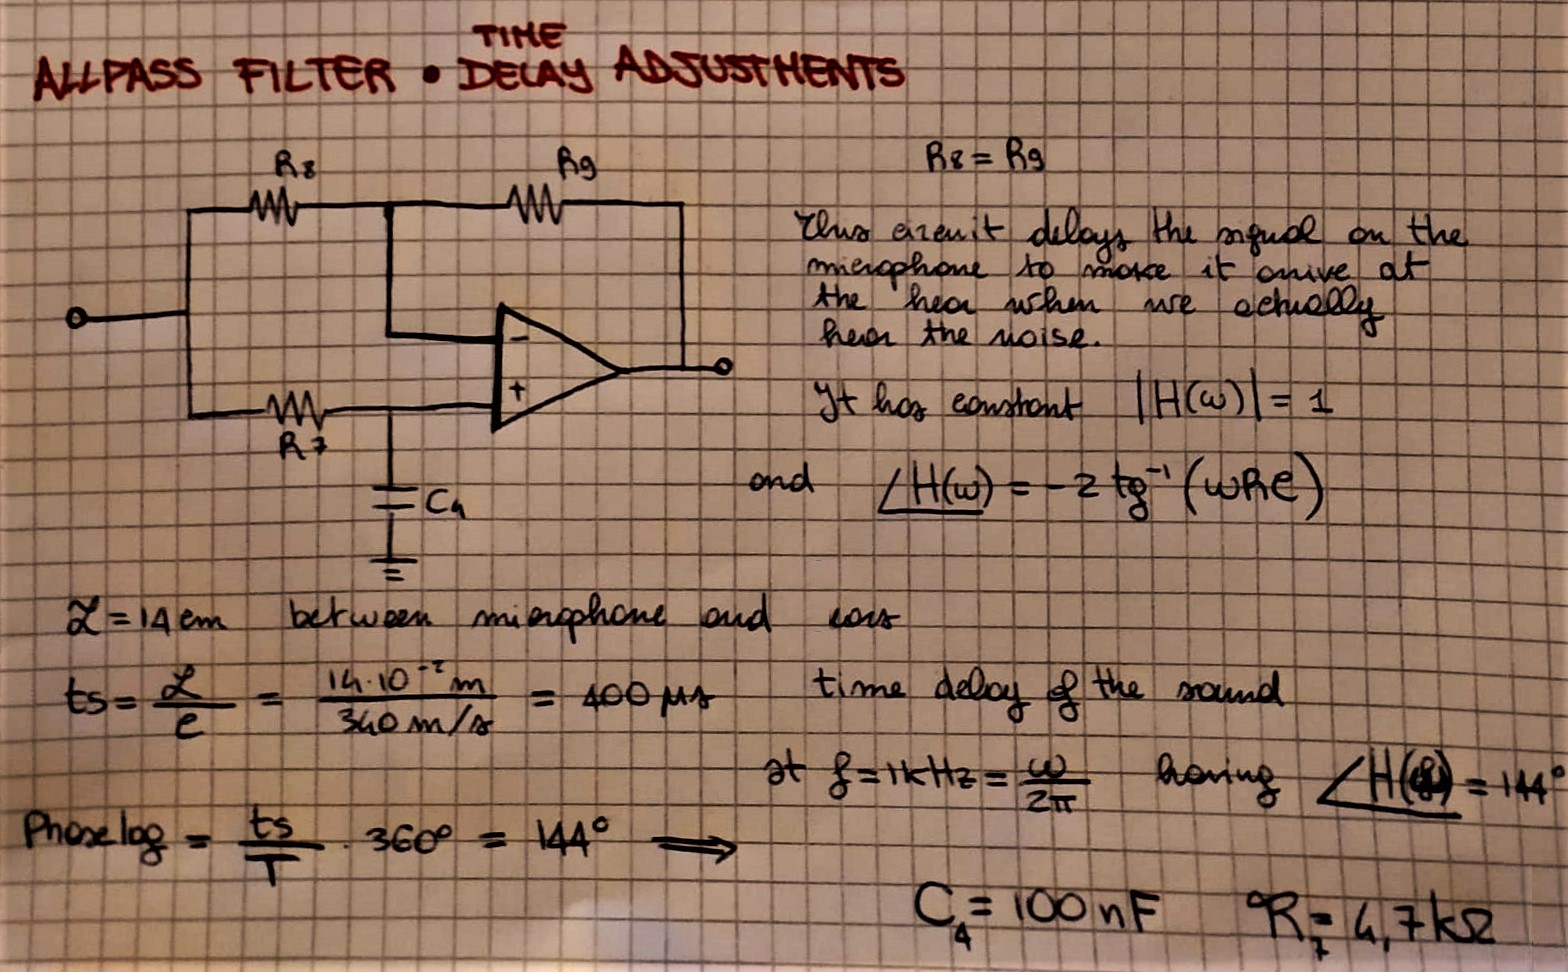 ALLPASS FILTER • TIME DELAY ADJUSTMENTS
R8
R9
R8 = R9
This circuit delays the signal on the
microphone to make it arrive at
the hear when we actually
hear the noise.
It has constant |H(ω)| = 1
and ∠H(ω) = -2 tg⁻¹ (ωRC)
-
+
R7
C4
L = 14 cm between microphone and ears
ts = L/c = 14·10⁻² m / 340 m/s = 400 μs time delay of the sound
at f = 1kHz = ω/2π having ∠H(ω) = 144°
Phase lag = ts/T · 360° = 144° ⟹
C4 = 100 nF R7 = 4,7 kΩ